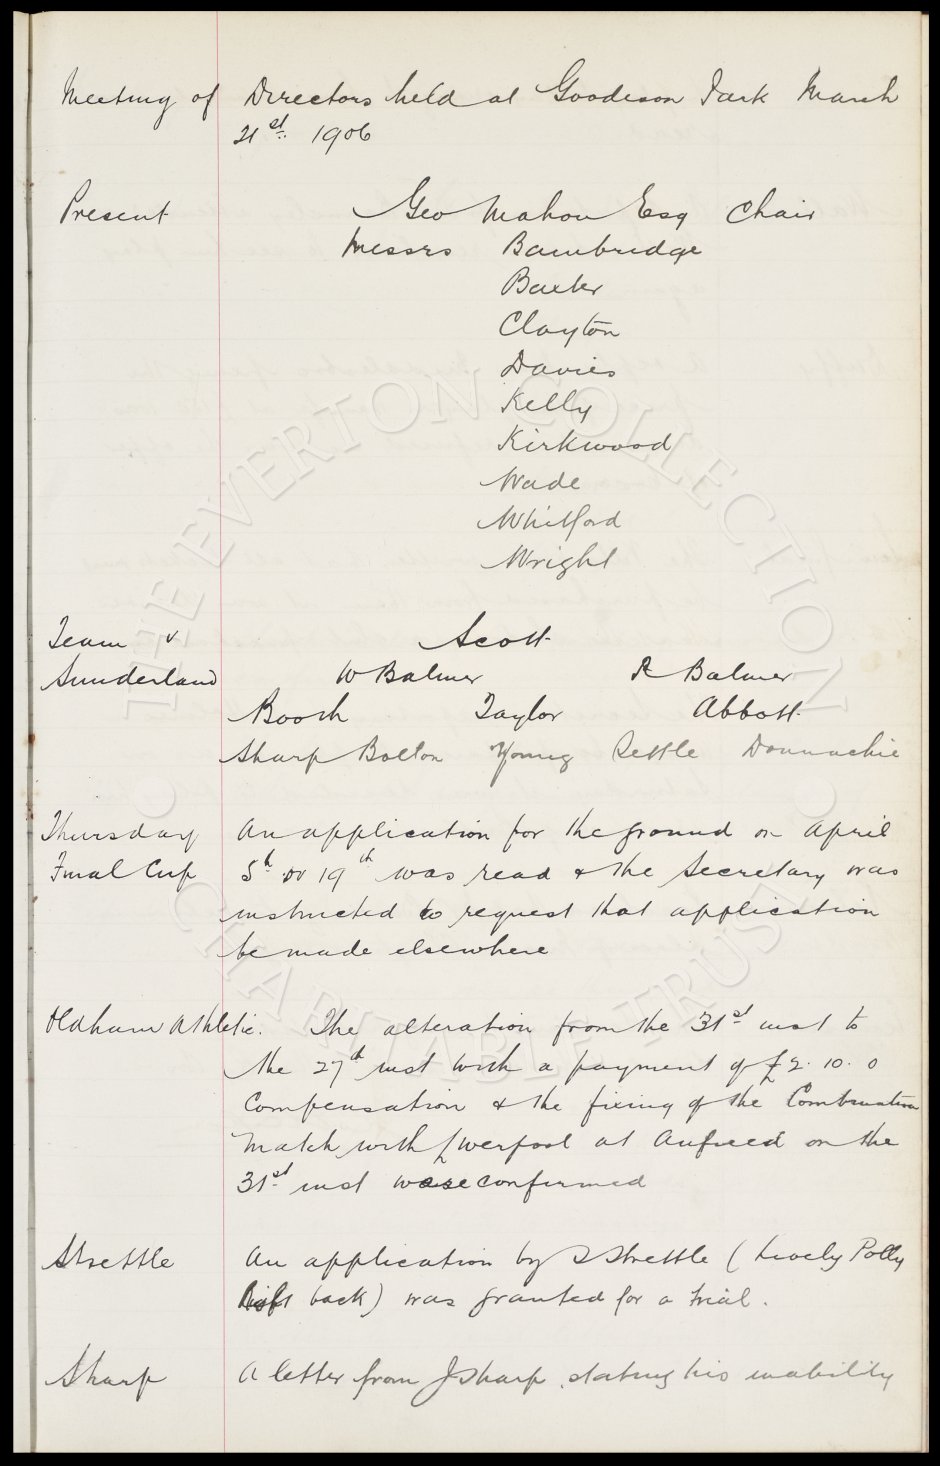 Meeting of Directors held at Goodison Park March
21st 1906
Present Geo Mahon Esq Chair
Messrs Bainbridge
Baxter
Clayton
Davies
Kelly
Kirkwood
Wade
Whitford
Wright
Team v Scott
Sunderland W Balmer R Balmer
Booth Taylor Abbott
Sharp Bolton Young Settle Donnachie
Thursday An application for the ground on April
Final Cup 5th or 19th was read & the Secretary was
instructed to request that application
be made elsewhere
Oldham Athletic. The alteration from the 31st inst to
the 27th inst with a payment of £2.10.0
Compensation & the fixing of the Combination
Match with Liverpool at Anfield on the
31st inst were confirmed
Strettle An application by S Strettle (Lively Polly
back) was granted for a trial.
Sharp A letter from J Sharp, stating his inability
THE EVERTON COLLECTION
CHARITABLE TRUST